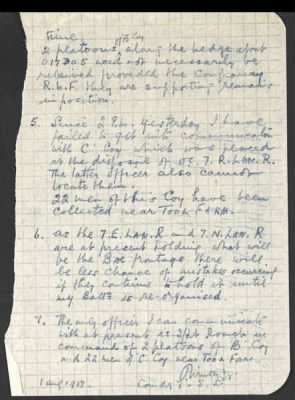 time.
of B Coy
2 platoons along the hedge about
017305 need not necessarily be
relieved provided the Company
R.W.F. they are supporting remains
in position.
5. Since 2 P.M. yesterday I have
failed to get into communication
with C Coy which were placed
at the disposal of O.C. 7. R. Lan. R.
The latter officer also cannot
locate them.
22 men of this Coy have been
collected near Tool Farm.
6. As the 7. E. Lan. R and 7. N. Lan. R
are at present holding what will
be the Bde frontage there will
be less chance of mistakes occurring
if they continue to hold it until
my Battn is re-organised.
7. The only officer I can communicate
with at present is 2/Lt in
command of 2 platoons of B Coy
and 22 men of C Coy near Tool Farm.
1 Aug 1917.
Comdg